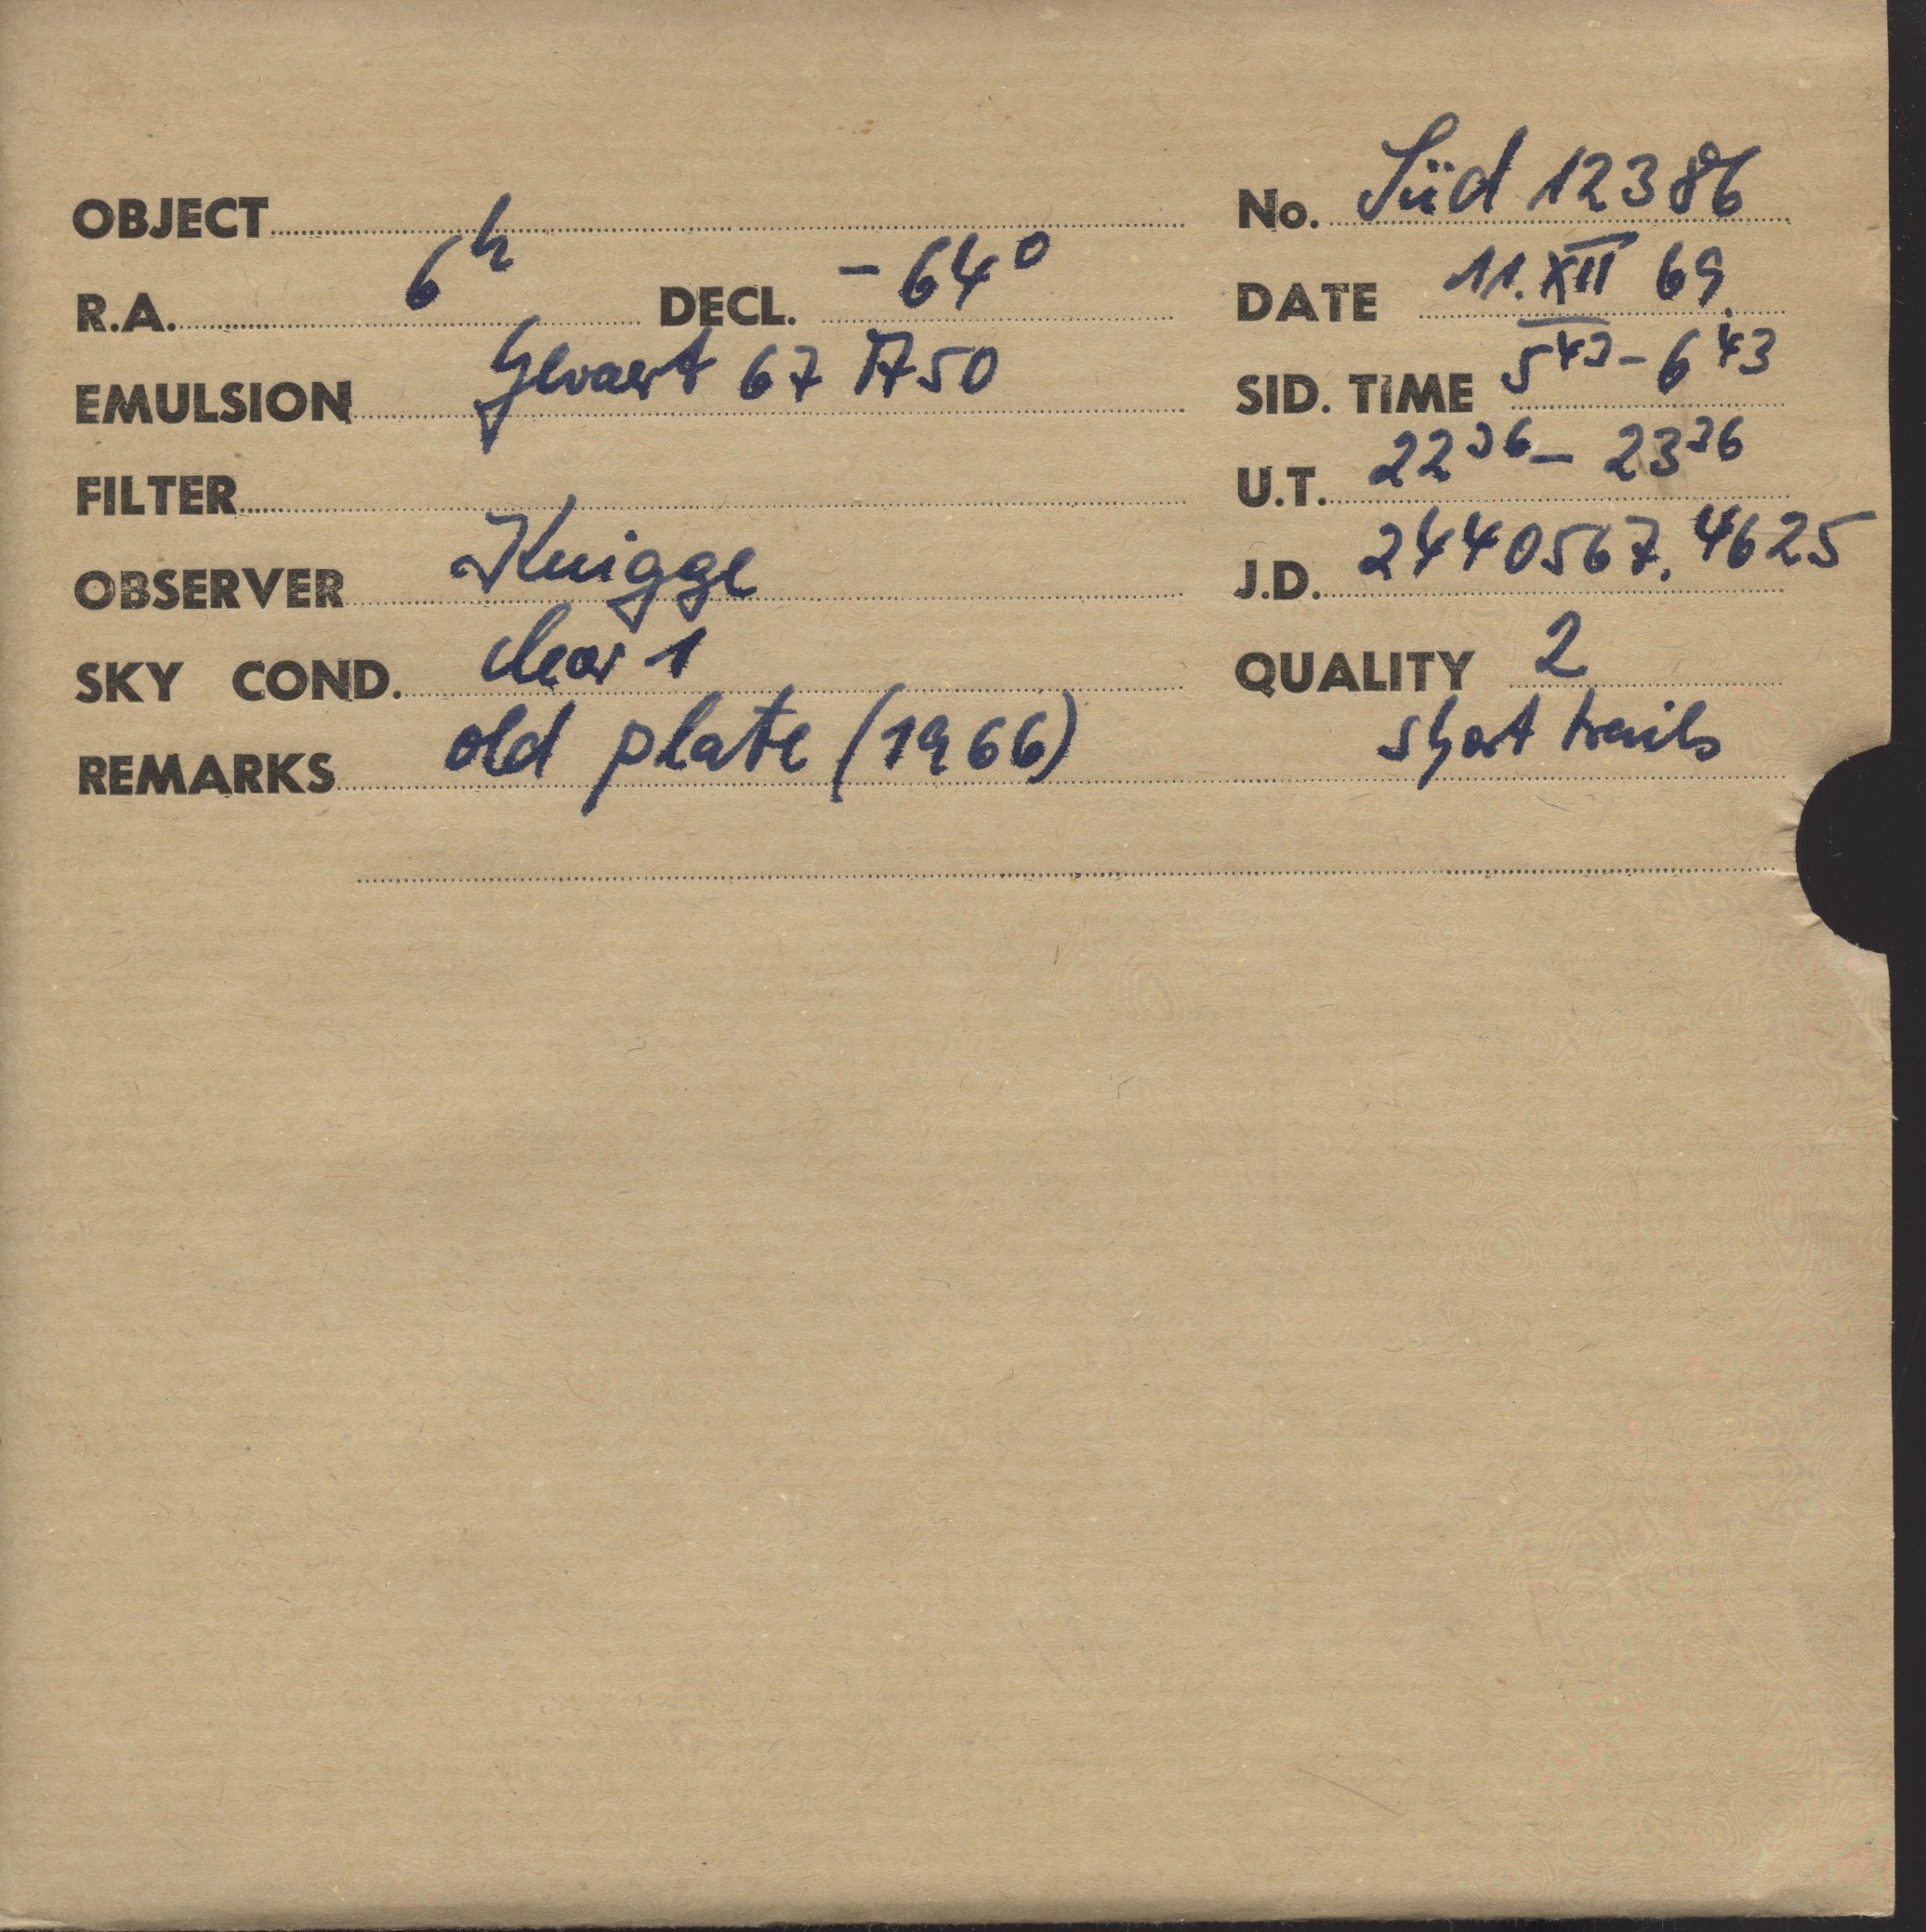 OBJECT No. Süd 12386
R.A. 6h DECL. -64° DATE 11. XII 69.
EMULSION Gevaert 67 A50 SID. TIME 5 43 - 6 43
FILTER U.T. 22 36 - 23 36
OBSERVER Knigge J.D. 2440567.4625
SKY COND. clear 1 QUALITY 2
REMARKS old plate (1966) short trails